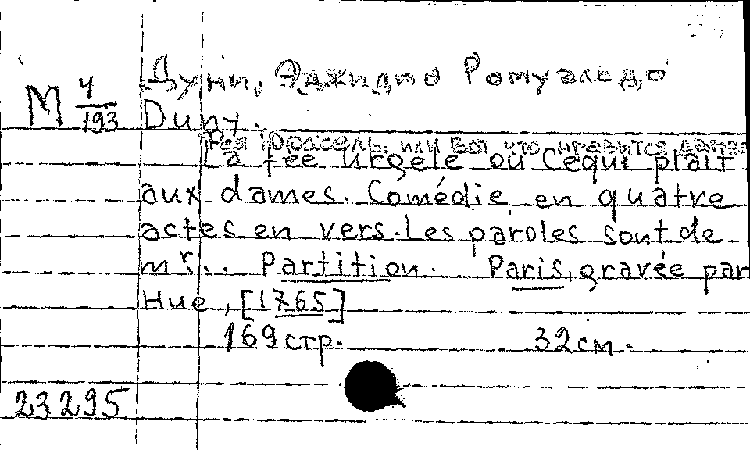 Дуни, Эджидио Ромуальдо
М 4/193 Duny.
Фея Юржель, или Вот что нравится дамам
La fée Urgele ou Cequi plaît
aux dames. Comédie en quatre
actes en vers. Les paroles sont de
mr... Partition. Paris, gravée par
Hue, [1765]
169 стр. 32 см.
23295